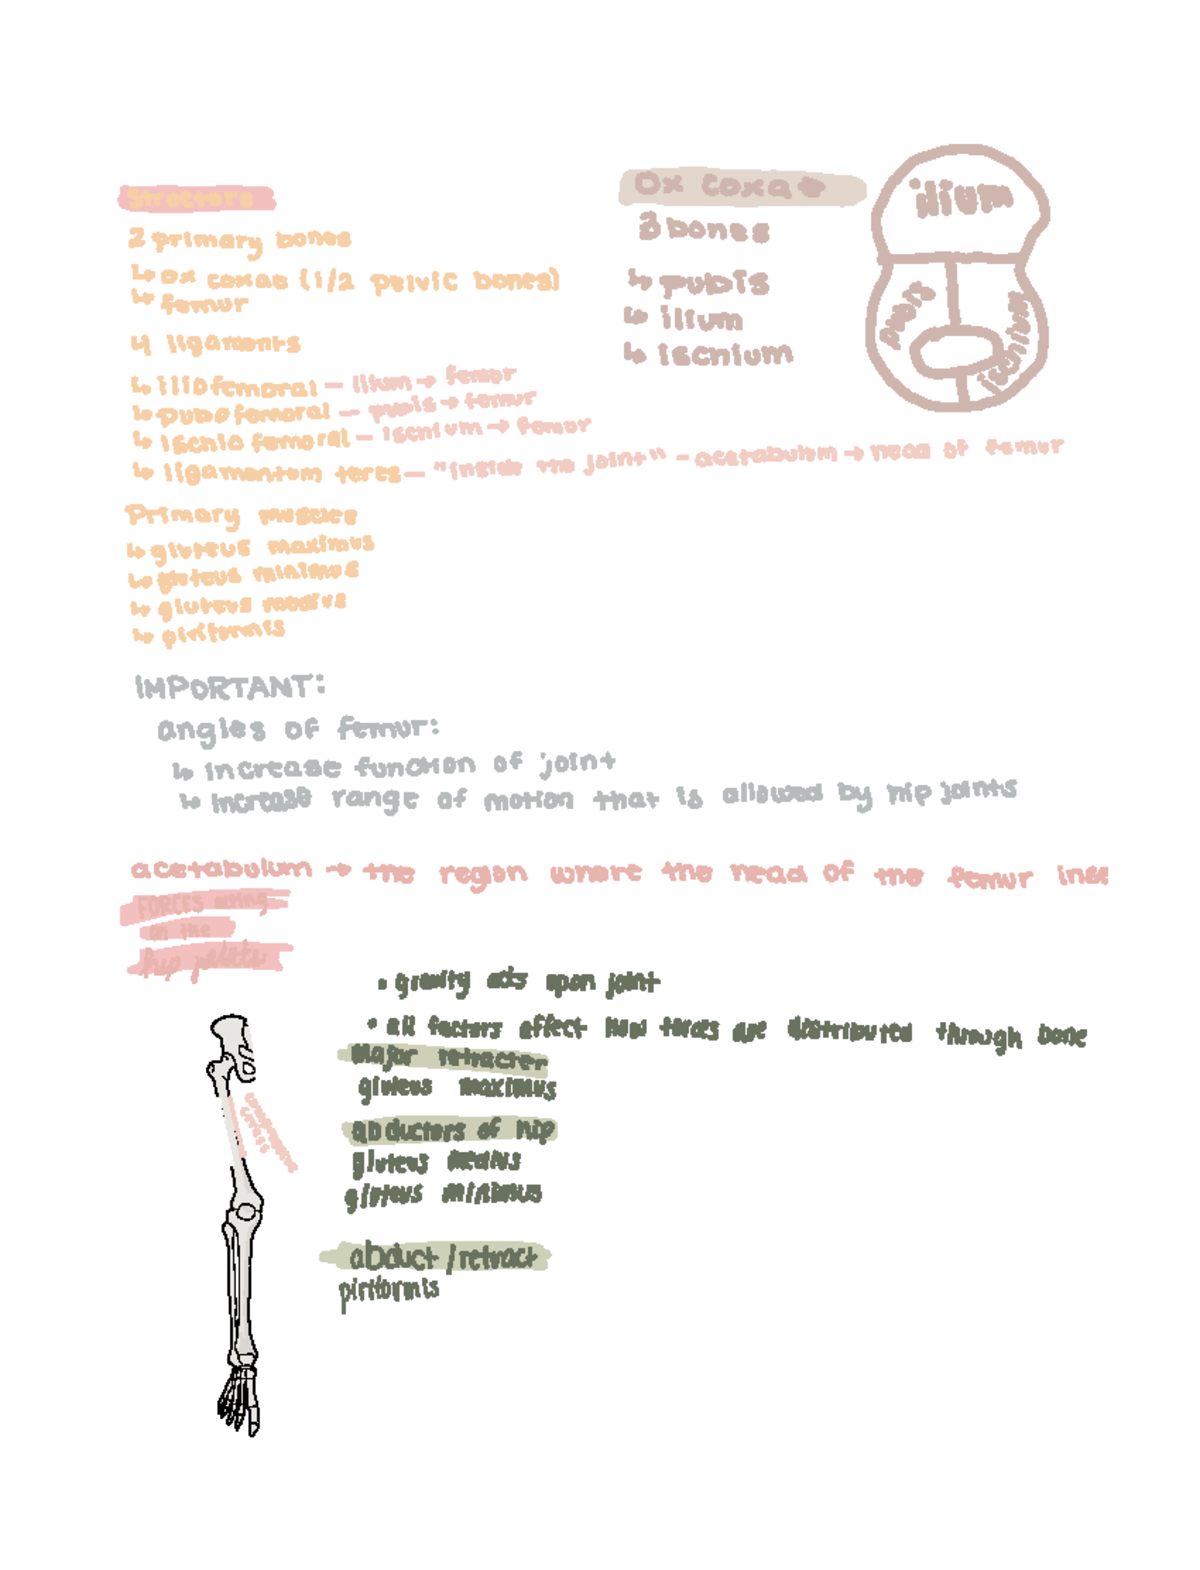 Structure
2 primary bones
↳ ox coxae (1/2 pelvic bones)
↳ femur
4 ligaments
↳ iliofemoral – ilium → femur
↳ pubofemoral – pubis → femur
↳ ischiofemoral – ischium → femur
↳ ligamentum teres – "inside the joint" - acetabulum → head of femur
Primary muscles
↳ gluteus maximus
↳ gluteus minimus
↳ gluteus medius
↳ piriformis
ox coxae
3 bones
↳ pubis
↳ ilium
↳ ischium
ilium
pubis
ischium
IMPORTANT:
angles of femur:
↳ increase function of joint
↳ increase range of motion that is allowed by hip joints
acetabulum → the region where the head of the femur inse
FORCES acting
on the
hip joints
• gravity acts upon joint
• all factors affect how forces are distributed through bone
major retracter
gluteus maximus
abductors of hip
gluteus medius
gluteus minimus
abduct / retract
piriformis